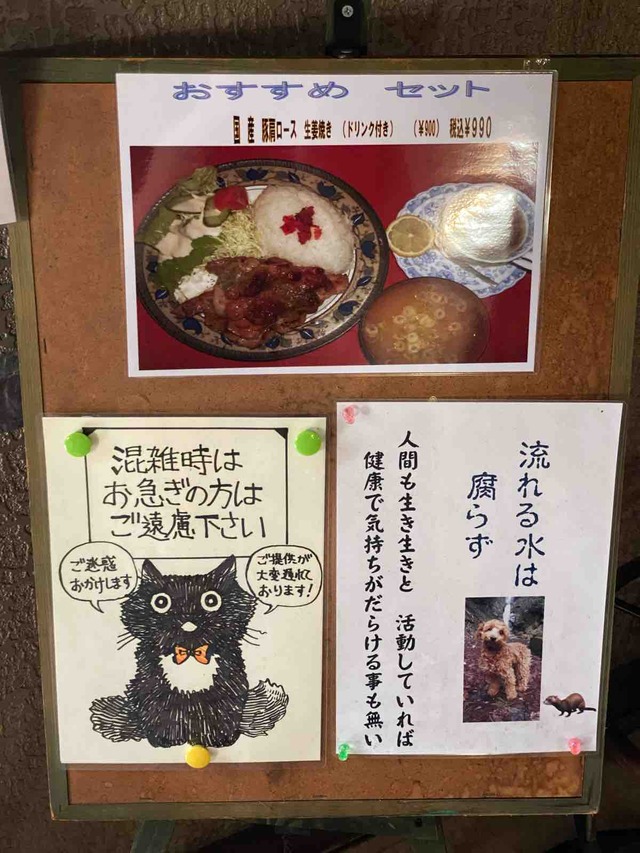 おすすめ セット
国産 豚肩ロース 生姜焼き （ドリンク付き） （￥900） 税込￥990
混雑時は
お急ぎの方は
ご遠慮下さい
ご迷惑
おかけします
ご提供が
大変遅れて
おります！
流れる水は
腐らず
人間も生き生きと 活動していれば
健康で気持ちがだらける事も無い